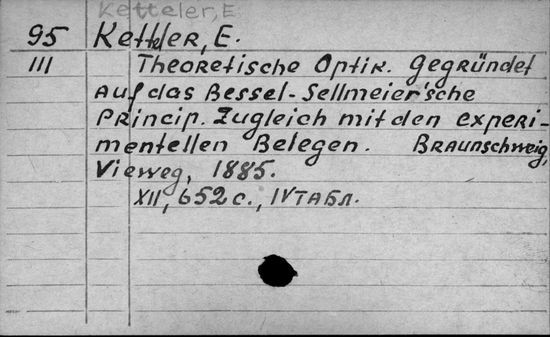 Ketteler, E
95 Ketteler, E.
III Theoretische Optik. Gegründet
auf das Bessel-Sellmeier'sche
Princip. Zugleich mit den experi-
mentellen Belegen. Braunschweig,
Vieweg, 1885.
XII, 652 с., IV табл.